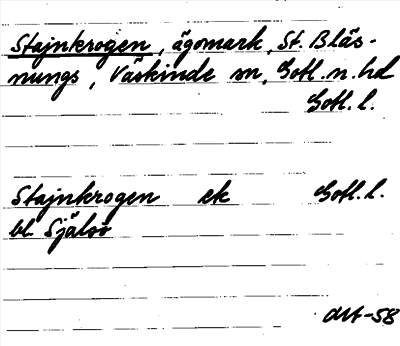 Stajnkrogen, ägomark, St. Bläs-
nungs, Väskinde sn, Gotl. n. hd
Gotl. l.
Stajnkrogen ek Gotl. l.
bl Själsö